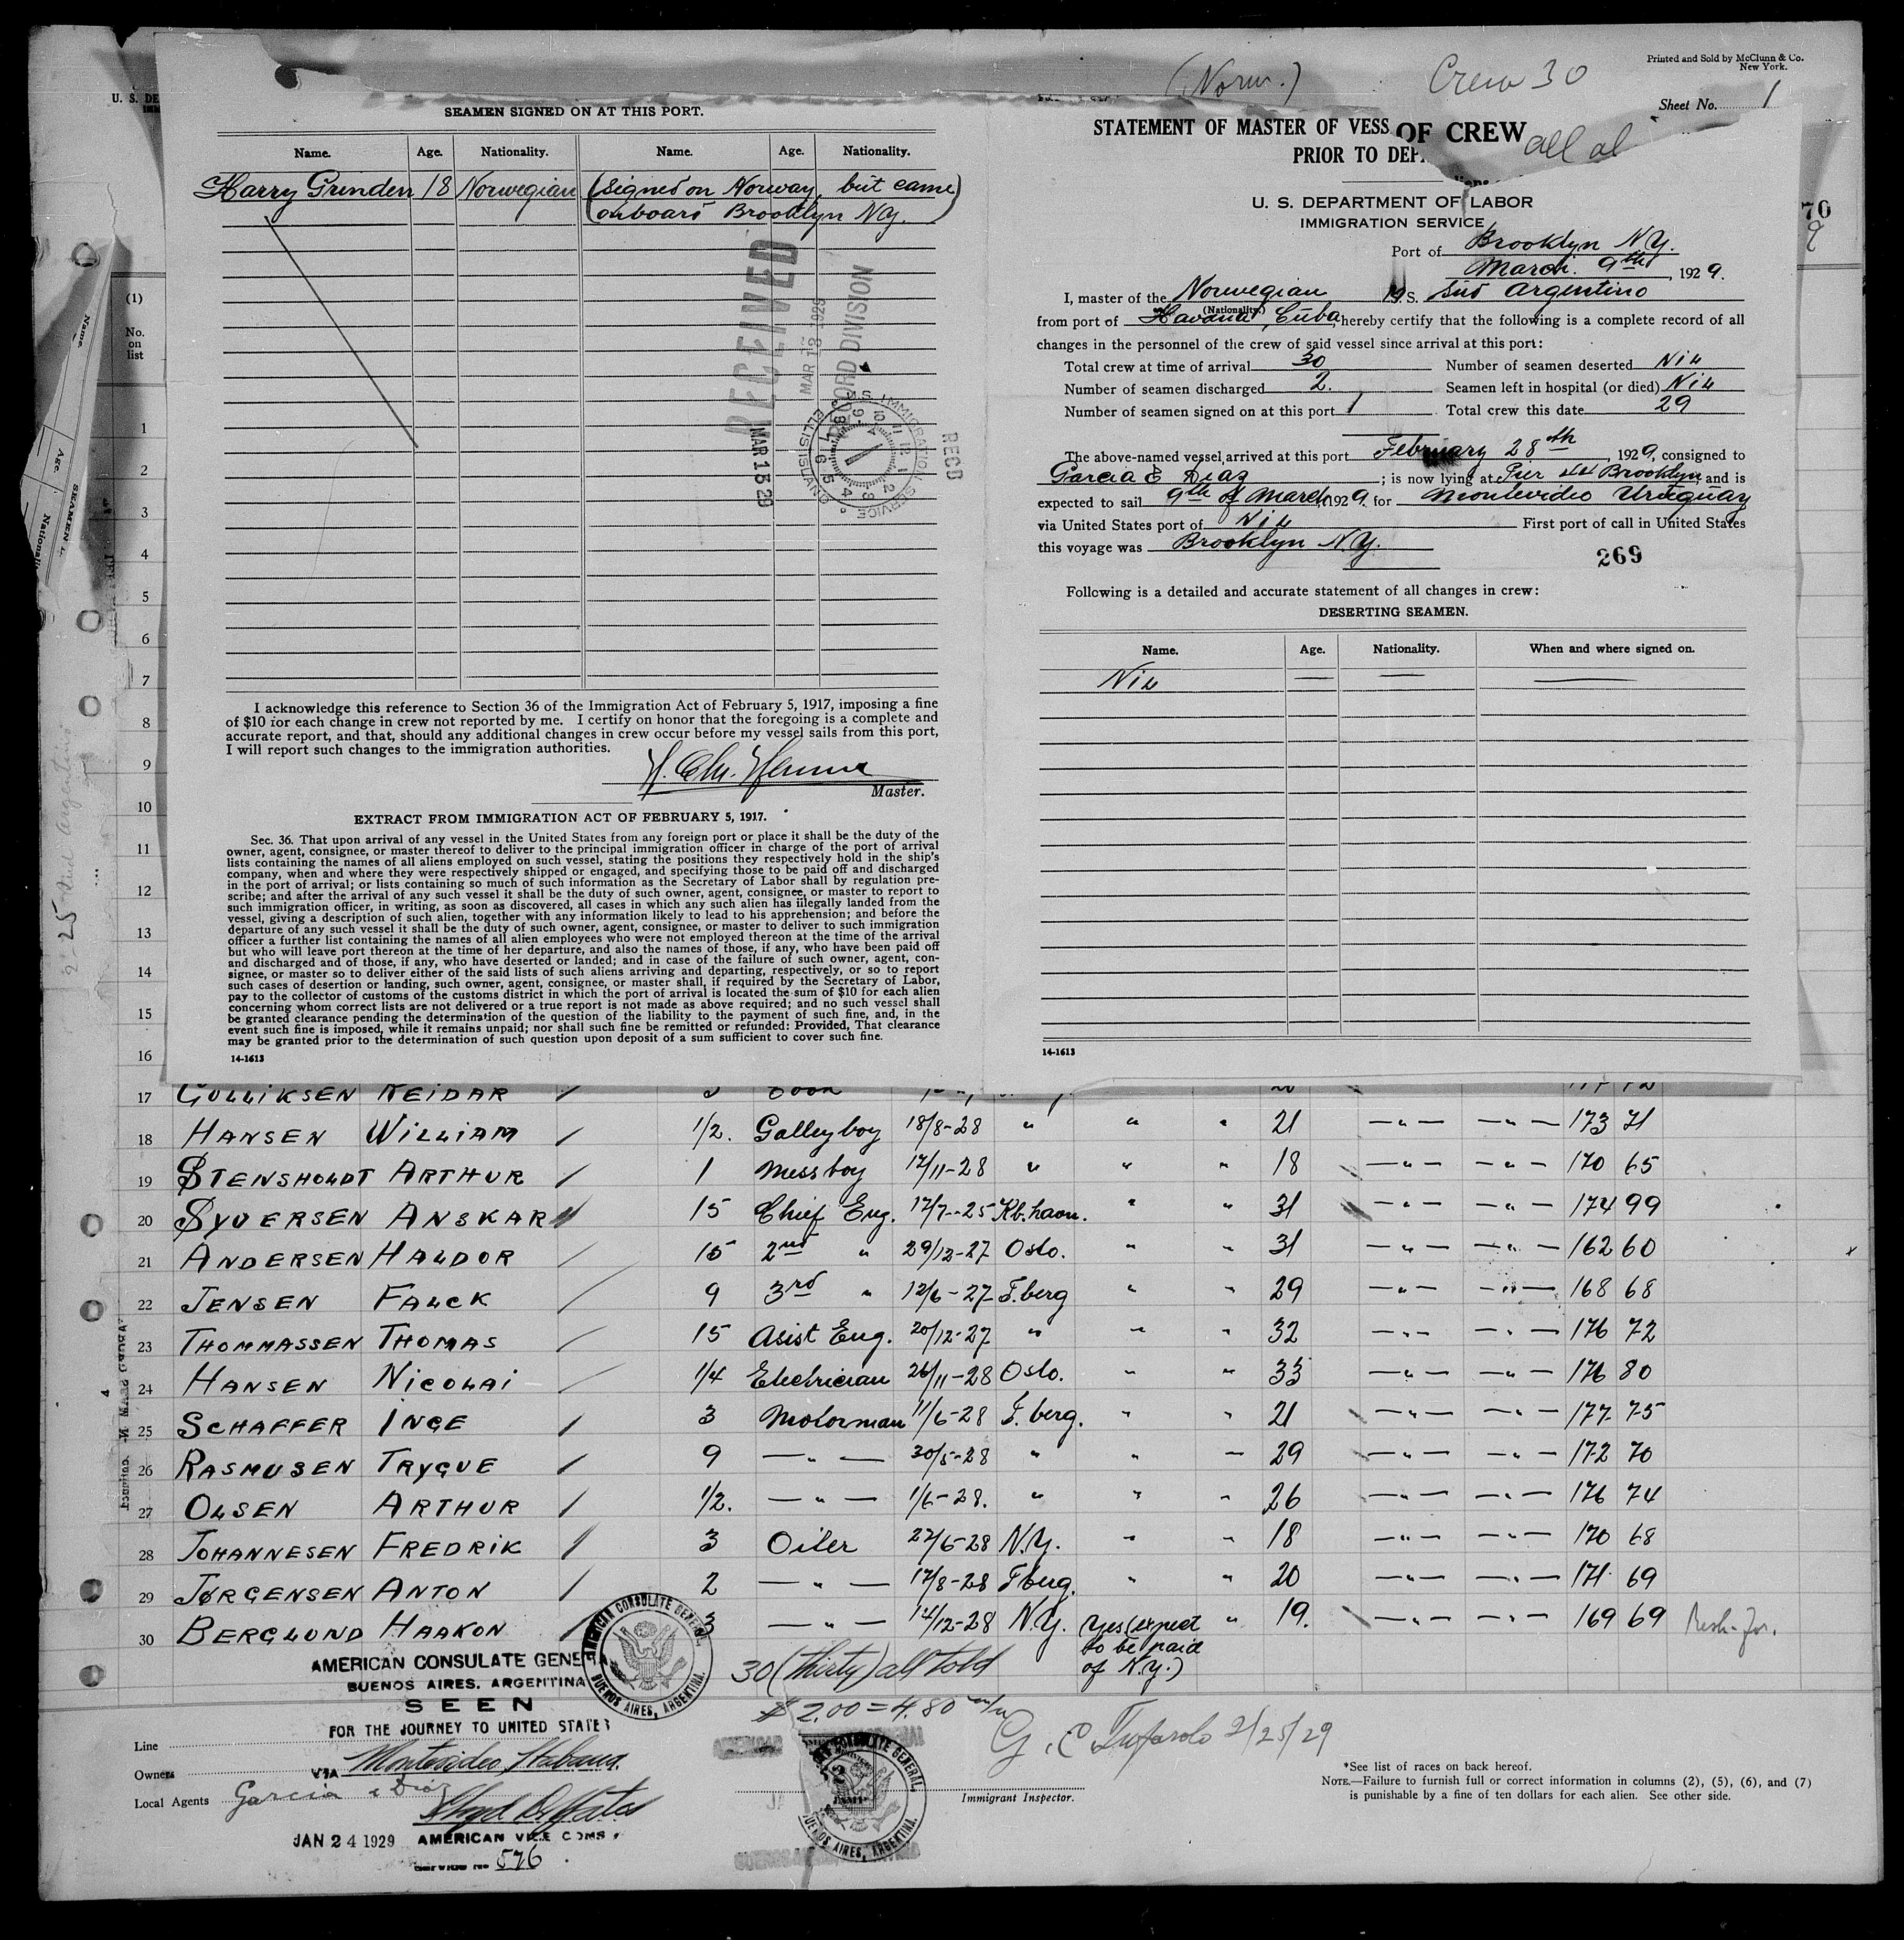 Printed and Sold by McClunn & Co.
New York.
(Norw.)
Crew 30
Sheet No. 1
SEAMEN SIGNED ON AT THIS PORT.
Name. Age. Nationality. Name. Age. Nationality.
Harry Grinden 18 Norwegian (signed on Norway, but came
onboard Brooklyn N.Y.)
RECEIVED
MAR 13 1929
RECORD DIVISION
MAR 13 29
RECD
U.S. IMMIGRATION SERVICE
ELLIS ISLAND
I acknowledge this reference to Section 36 of the Immigration Act of February 5, 1917, imposing a fine
of $10 for each change in crew not reported by me. I certify on honor that the foregoing is a complete and
accurate report, and that, should any additional changes in crew occur before my vessel sails from this port,
I will report such changes to the immigration authorities.
Master.
EXTRACT FROM IMMIGRATION ACT OF FEBRUARY 5, 1917.
Sec. 36. That upon arrival of any vessel in the United States from any foreign port or place it shall be the duty of the
owner, agent, consignee, or master thereof to deliver to the principal immigration officer in charge of the port of arrival
lists containing the names of all aliens employed on such vessel, stating the positions they respectively hold in the ship's
company, when and where they were respectively shipped or engaged, and specifying those to be paid off and discharged
in the port of arrival; or lists containing so much of such information as the Secretary of Labor shall by regulation pre-
scribe; and after the arrival of any such vessel it shall be the duty of such owner, agent, consignee, or master to report to
such immigration officer, in writing, as soon as discovered, all cases in which any such alien has illegally landed from the
vessel, giving a description of such alien, together with any information likely to lead to his apprehension; and before the
departure of any such vessel it shall be the duty of such owner, agent, consignee, or master to deliver to such immigration
officer a further list containing the names of all alien employees who were not employed thereon at the time of the arrival
but who will leave port thereon at the time of her departure, and also the names of those, if any, who have been paid off
and discharged and of those, if any, who have deserted or landed; and in case of the failure of such owner, agent, con-
signee, or master so to deliver either of the said lists of such aliens arriving and departing, respectively, or so to report
such cases of desertion or landing, such owner, agent, consignee, or master shall, if required by the Secretary of Labor,
pay to the collector of customs of the customs district in which the port of arrival is located the sum of $10 for each alien
concerning whom correct lists are not delivered or a true report is not made as above required; and no such vessel shall
be granted clearance pending the determination of the question of the liability to the payment of such fine, and, in the
event such fine is imposed, while it remains unpaid; nor shall such fine be remitted or refunded: Provided, That clearance
may be granted prior to the determination of such question upon deposit of a sum sufficient to cover such fine.
14-1613
STATEMENT OF MASTER OF VESS
OF CREW
all al
PRIOR TO DEP
U. S. DEPARTMENT OF LABOR
IMMIGRATION SERVICE
Port of Brooklyn N.Y.
March. 9th, 1929.
I, master of the Norwegian M.S. Sud Argentino
(Nationality.)
from port of Havana, Cuba, hereby certify that the following is a complete record of all
changes in the personnel of the crew of said vessel since arrival at this port:
Total crew at time of arrival 30 Number of seamen deserted Nil
Number of seamen discharged 2. Seamen left in hospital (or died) Nil
Number of seamen signed on at this port 1 Total crew this date 29
The above-named vessel arrived at this port February 28th, 1929, consigned to
Garcia & Diaz; is now lying at Pier Brooklyn, and is
expected to sail 9th of March, 1929. for Montevideo Uruguay
via United States port of Nil First port of call in United States
this voyage was Brooklyn N.Y.
269
Following is a detailed and accurate statement of all changes in crew:
DESERTING SEAMEN.
Name. Age. Nationality. When and where signed on.
Nil — — —
14-1613
70
U. S. DE
(1)
No.
on
list
1
2
3
4
5
6
7
8
9
10
11
12
13
14
15
16
17 GULLIKSEN REIDAR
18 HANSEN WILLIAM 1/2. Galleyboy 18/8-28 " " " 21 —"— —"— 173 71
19 STENSHOLDT ARTHUR 1 Messboy 17/11-28 " " " 18 —"— —"— 170 65
20 SYVERSEN ANSKAR 15 Chief Eng. 17/7-25 Kb.havn. " " 31 —"— —"— 174 99
21 ANDERSEN HALDOR 15 2nd " 29/12-27 Oslo. " " 31 —"— —"— 162 60
22 JENSEN FALCK 9 3rd " 12/6-27 T.berg " " 29 —"— —"— 168 68
23 THOMMASSEN THOMAS 15 Asist Eng. 20/12-27 " " " 32 —"— —"— 176 72
24 HANSEN NICOLAI 1/4 Electrician 26/11-28 Oslo. " " 33 —"— —"— 176 80
25 SCHAFFER INGE 3 Motorman 11/6-28 T.berg. " " 21 —"— —"— 177 75
26 RASMUSEN TRYGVE 9 —"— 30/5-28 " " " 29 —"— —"— 172 70
27 OLSEN ARTHUR 1/2. —"— 1/6-28. " " " 26 —"— —"— 176 74
28 JOHANNESEN FREDRIK 3 Oiler 27/6-28 N.Y. " " 18 —"— —"— 170 68
29 JØRGENSEN ANTON 2 —"— 17/8-28 T.berg. " " 20 —"— —"— 171 69
30 BERGLUND HAAKON 3 —"— 14/12-28 N.Y. Yes (expect " 19. —"— —"— 169 69
to be paid
of N.Y.)
30 (thirty) all told
AMERICAN CONSULATE GENERAL
BUENOS AIRES, ARGENTINA.
AMERICAN CONSULATE GENE
BUENOS AIRES, ARGENTINA
SEEN
FOR THE JOURNEY TO UNITED STATES
VIA Montevideo, Habana.
$ 2.00 = 4.80 m/n
2/25/29
Line
Owners
Local Agents Garcia & Diaz
JAN 24 1929 AMERICAN VICE CONS
576
AMERICAN CONSULATE GENERAL
BUENOS AIRES, ARGENTINA.
Immigrant Inspector.
*See list of races on back hereof.
NOTE.—Failure to furnish full or correct information in columns (2), (5), (6), and (7)
is punishable by a fine of ten dollars for each alien. See other side.